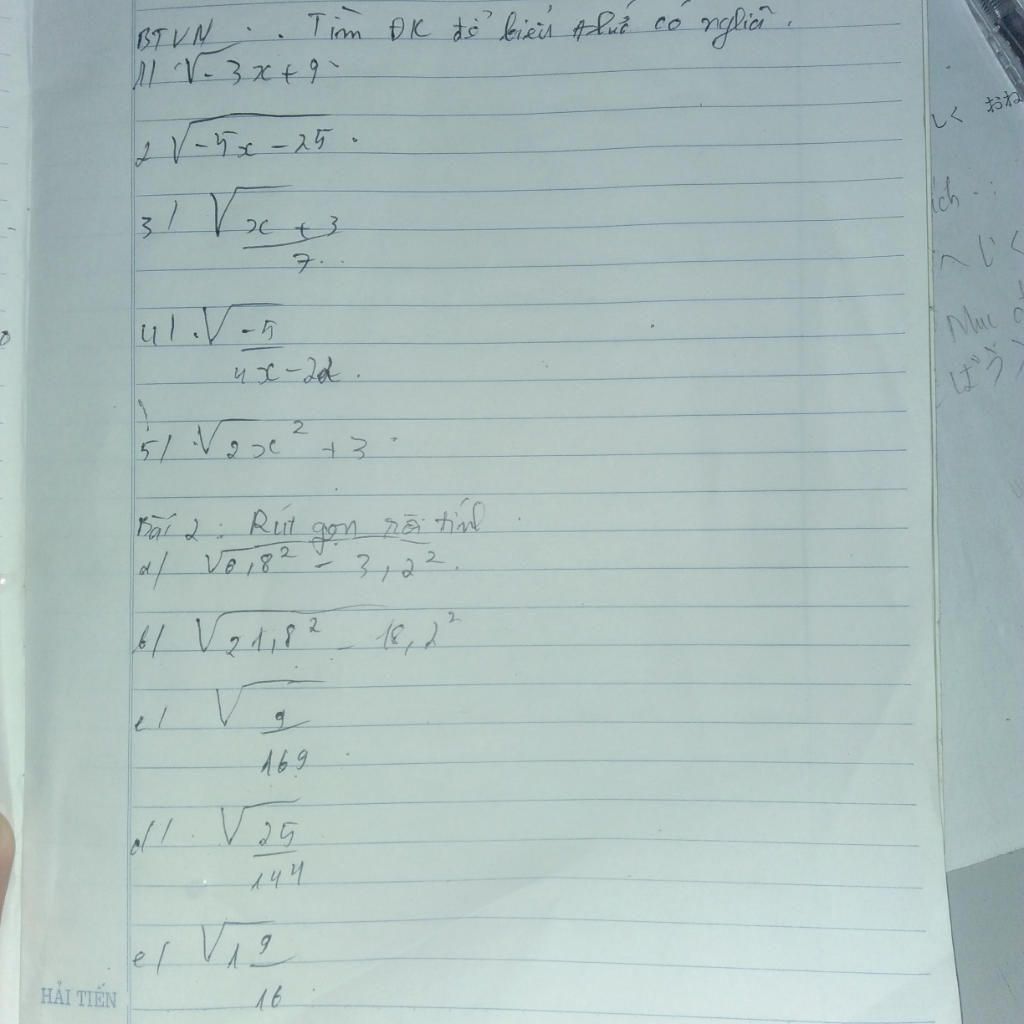 BTVN : . Tìm ĐK để biểu thức có nghĩa .
1/ √-3x+9
2 √-5x-25 .
3/ √x + 3
7
4/ . √-5
4x-2
5/ √2x² + 3
Bài 2 : Rút gọn rồi tính
a/ √6,8² - 3,2² .
b/ √21,8² - 18,2²
c/ √9
169
d/ . √25
144
e/ √1 9
16
HẢI TIẾN
しく おね
ích
へじく
Mục
ぼう